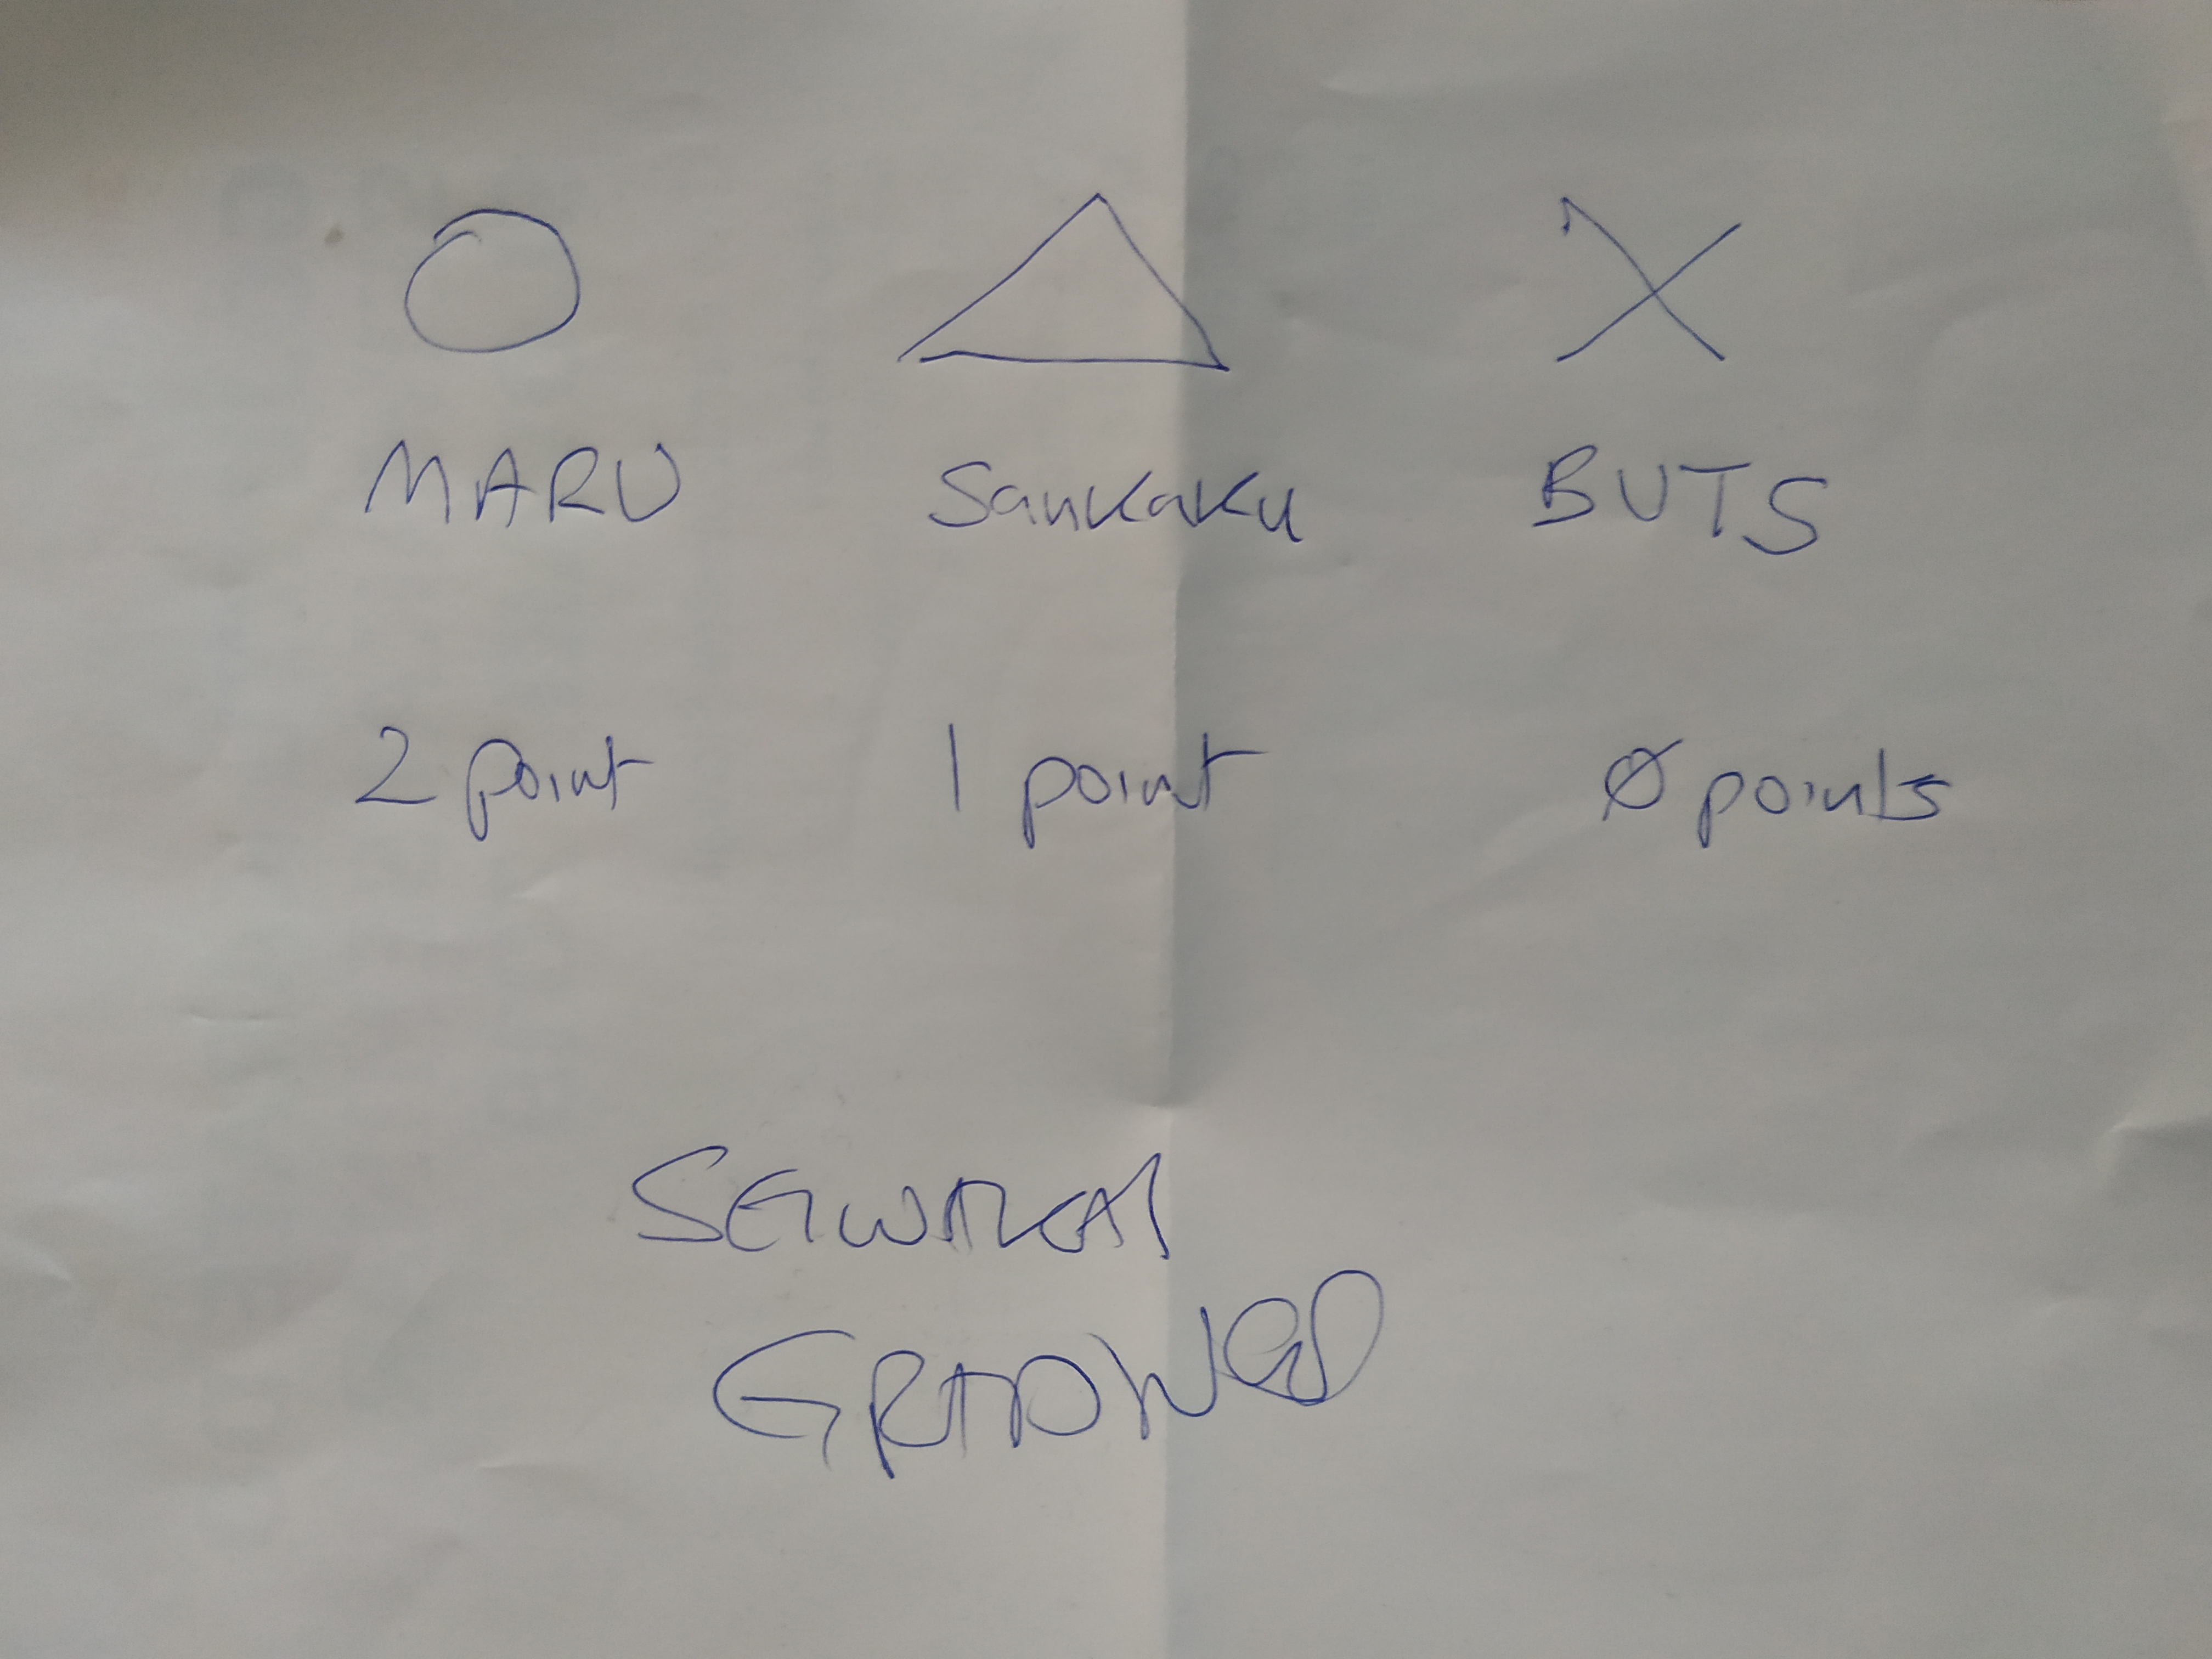 MARU Sankaku BUTS
2 point 1 point 0 points
SEIWAKAI
GRADING